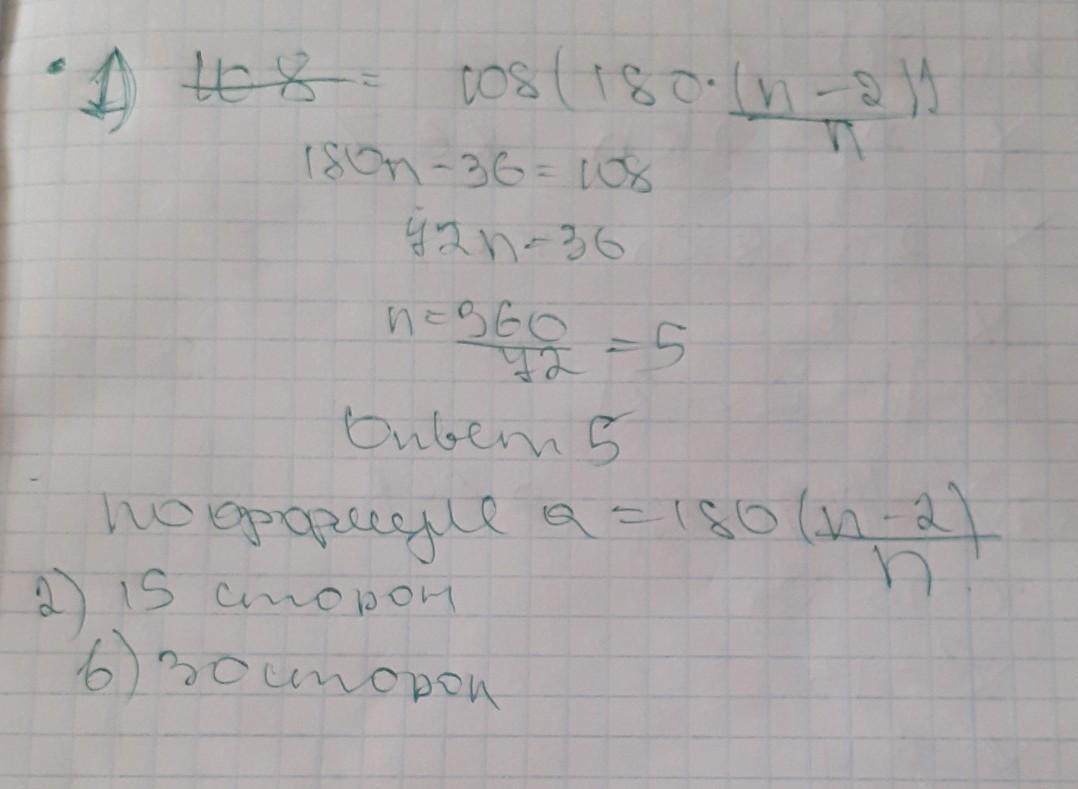 1) 108 = 108(180·(n-2))/n
180n-36=108
72n-36
n=360/72=5
Ответ 5
по формуле a=180(n-2)/n
2) 15 сторон
6) 30 сторон